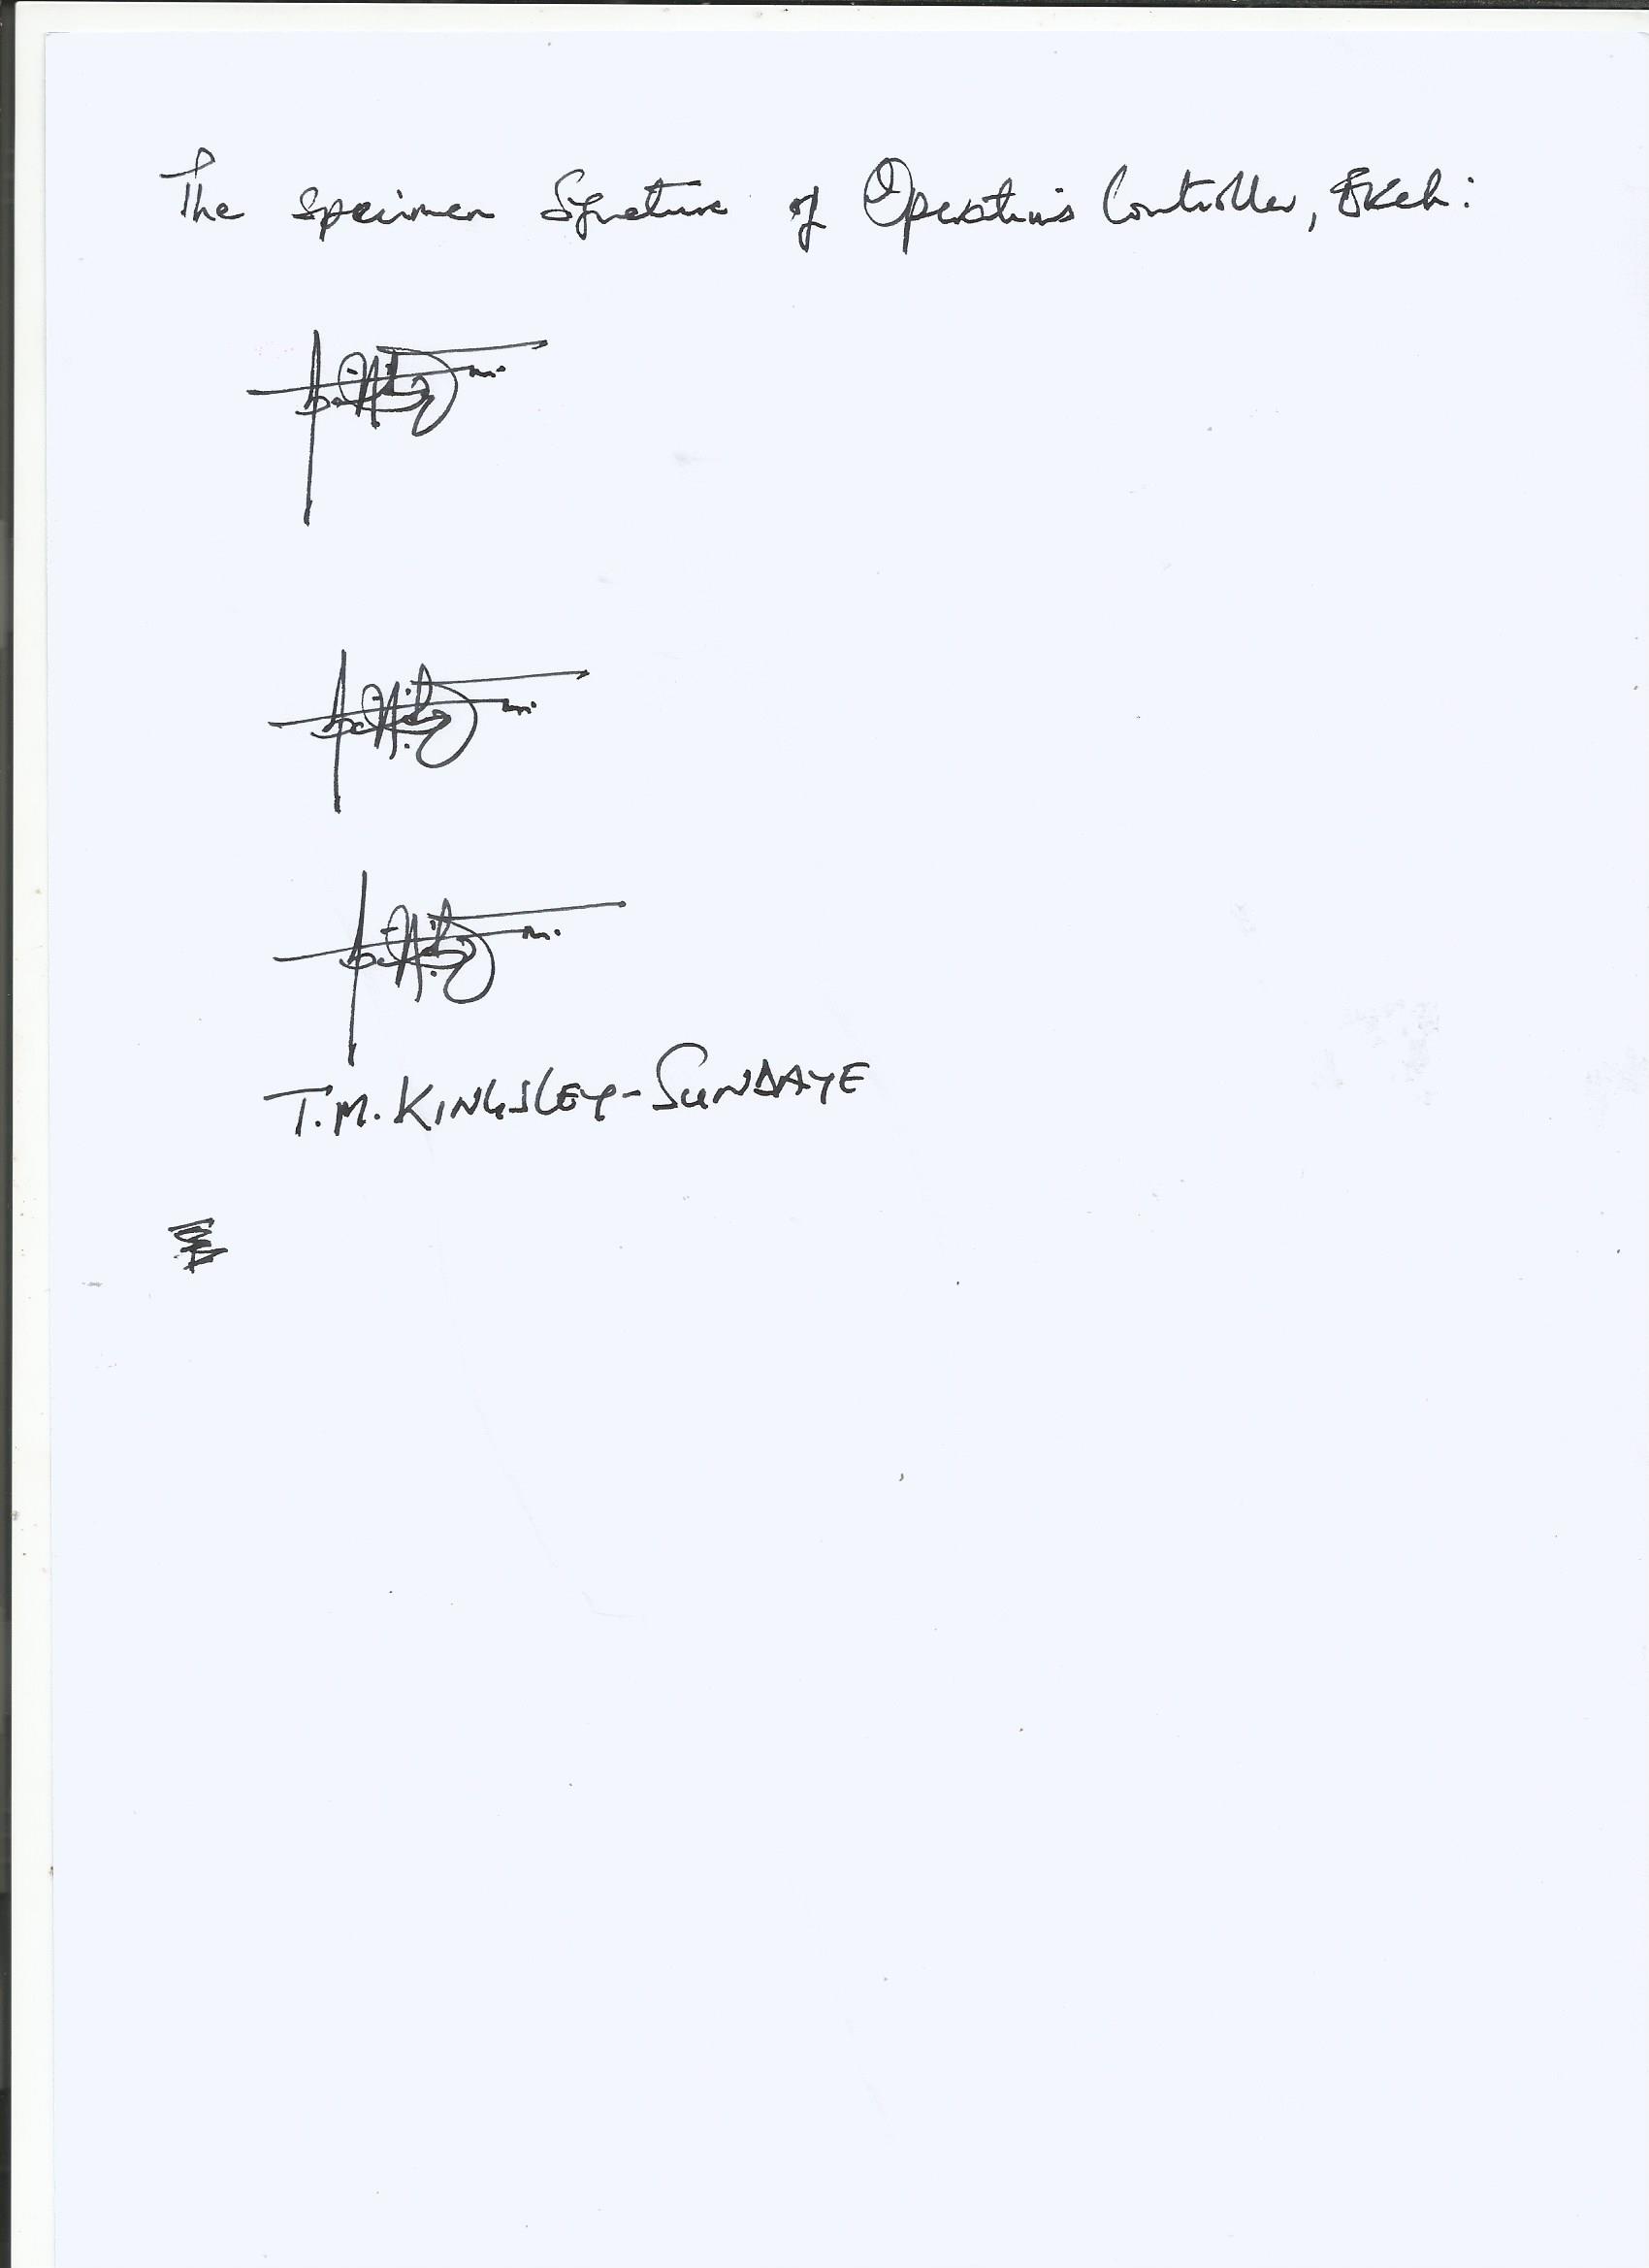 The specimen Signature of Operations Controller,
T.M. KINGSLEY-SUNDAYE